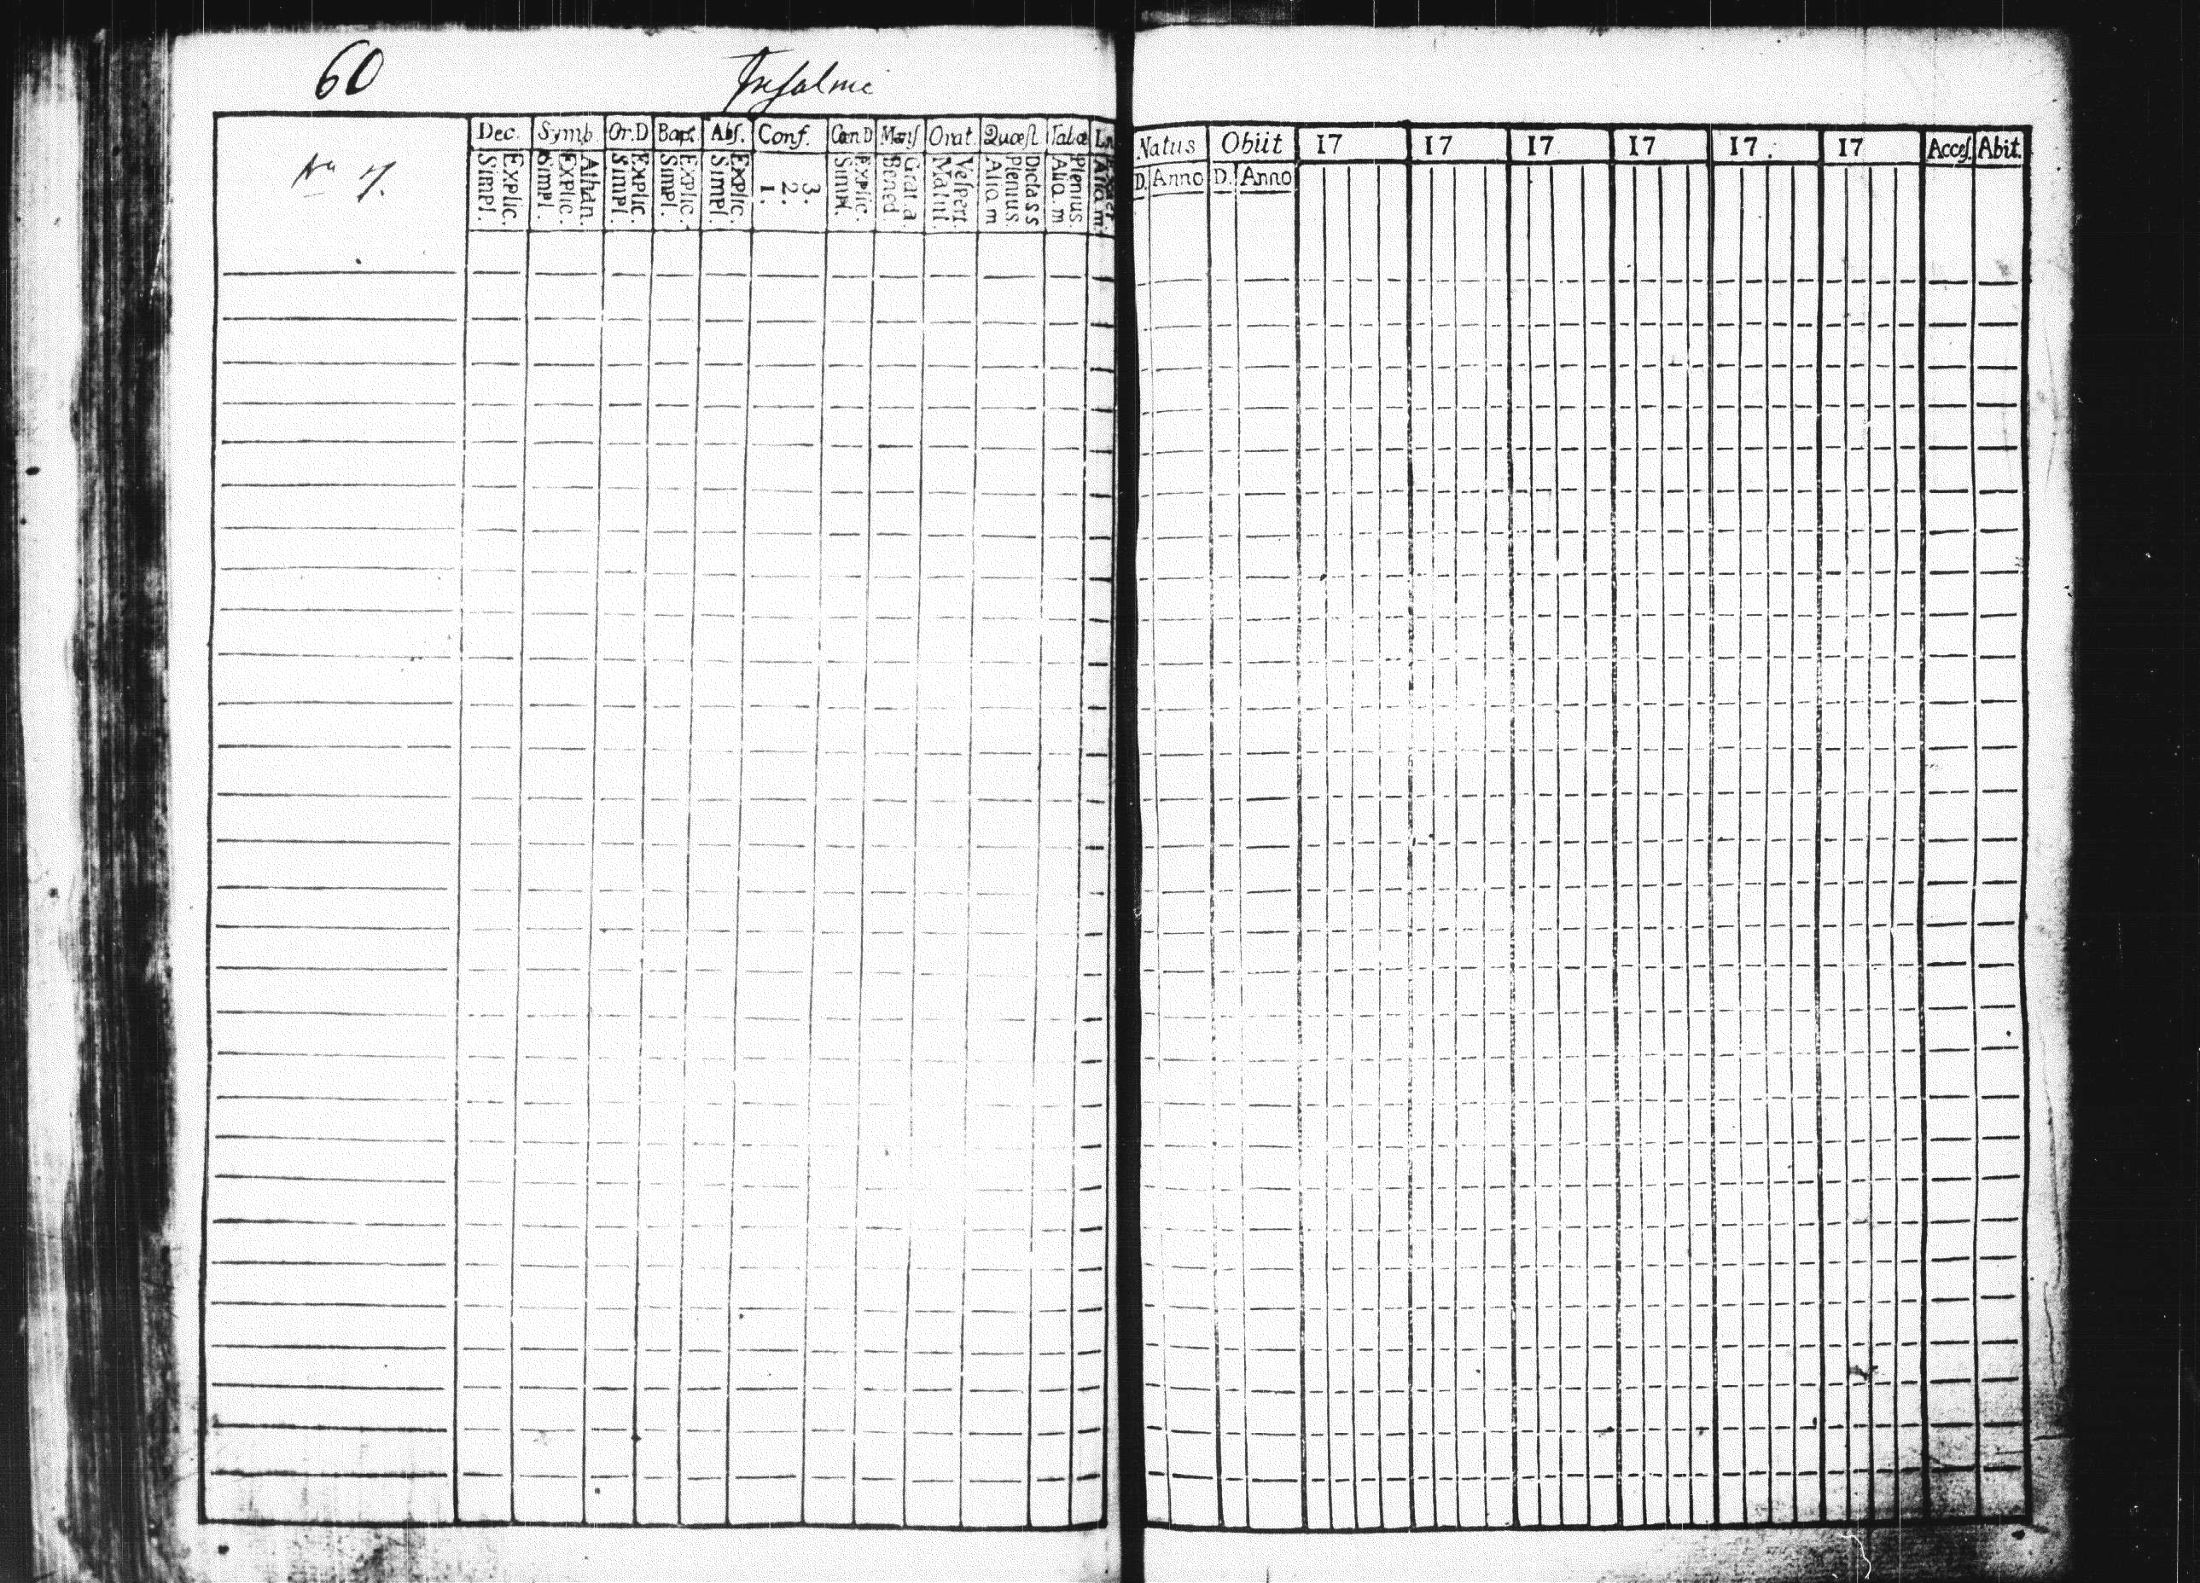 60
Dec. Symb. Or. D Bapt Abſ. Conf. Cœn D Menſ Orat. Quæſt Tabæ
No 7.
Simpl. Explic.
Simpl. Explic. Athan.
Simpl. Explic.
Simpl. Explic.
Simpl. Explic.
1. 2. 3.
Simpl. Explic.
Bened Grat a.
Matut. Veſpert.
Alia m Plenius. Dicta s s
Alia m Plenius.
Natus Obiit 17 17 17 17 17 17 Acceſ. Abit.
D. Anno D. Anno